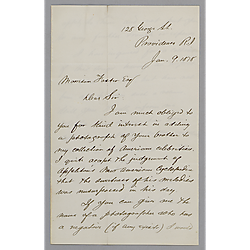 125 George St.
Providence R.I
Jan. 9. 1878
Foster Esq
Dear Sir
I am much obliged to
you for kind interest in adding
a photograph of your brother to
my collection of American celebrities.
I quite accept the judgment of
Appletons New American Cyclopædia
that the sweetness of his melodies
was unsurpassed in his day.
If you can give me the
name of a photographer who has
a negative (if any exist)